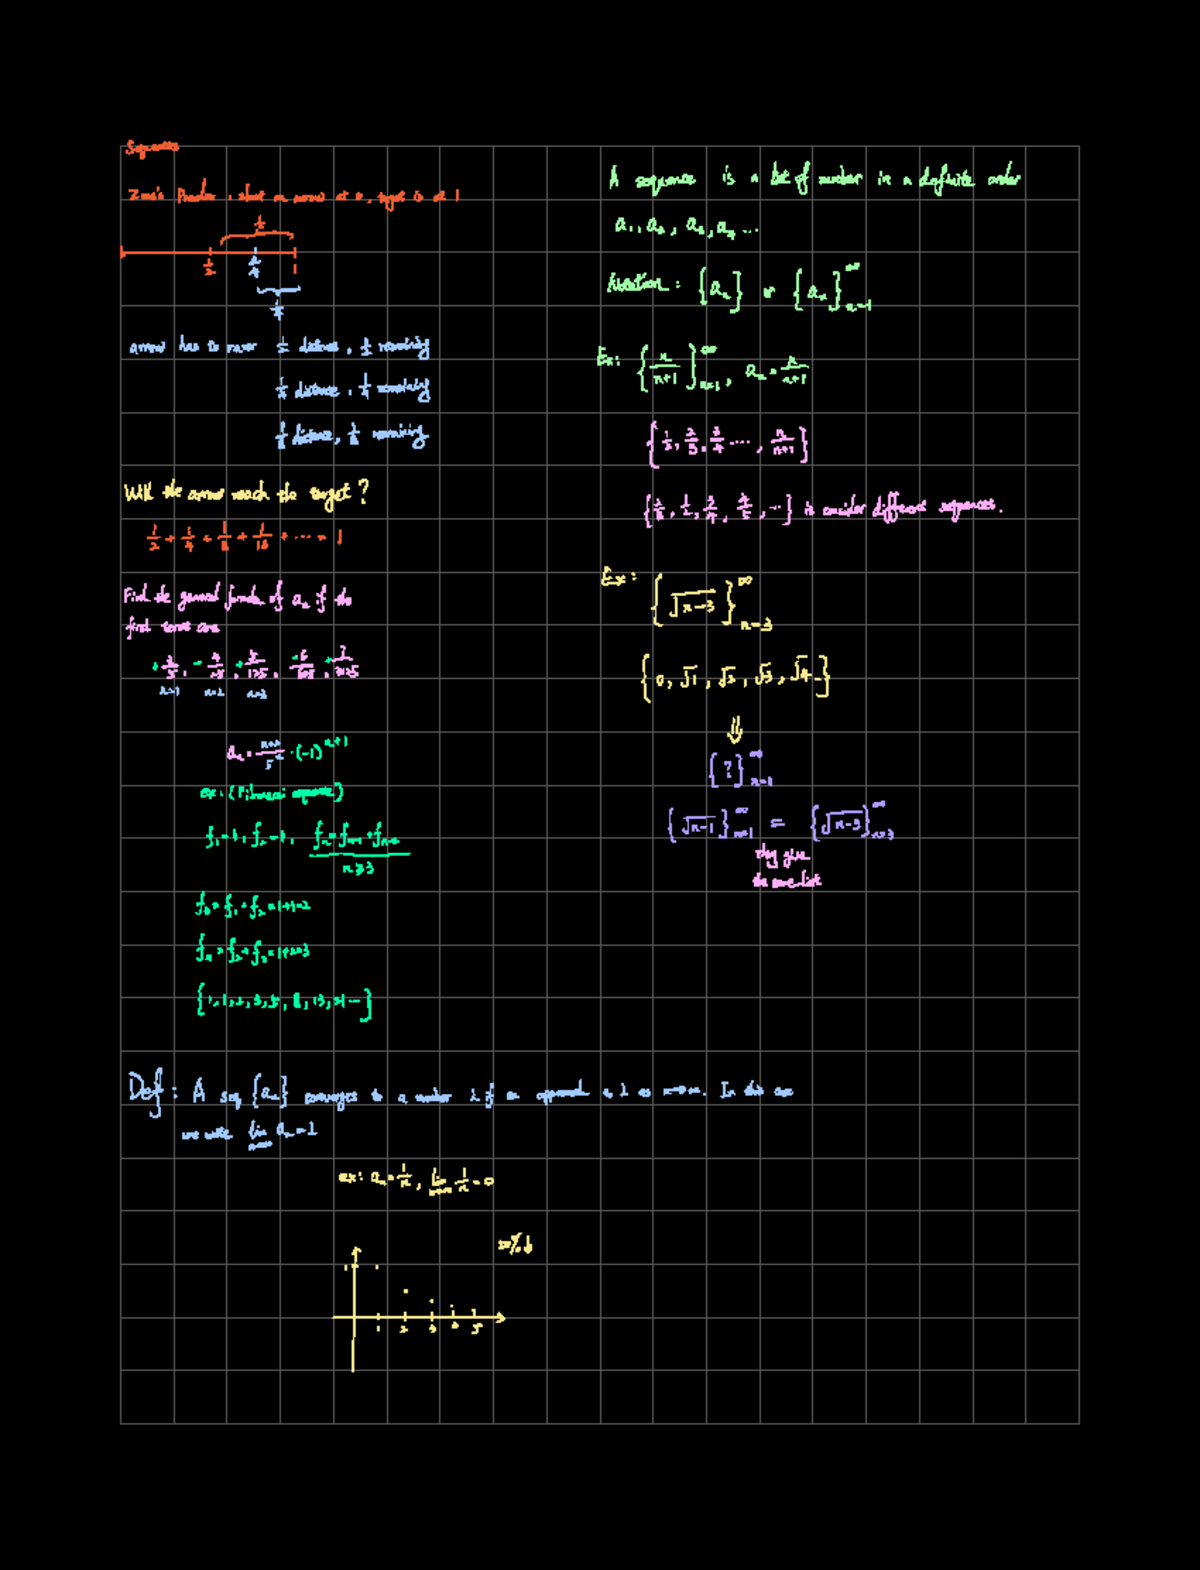 Sequences
Zeno's Paradox : shoot an arrow at 0, target is at 1
1/2
1/2 3/4 1
1/4
arrow has to cover 1/2 distance, 1/2 remaining
1/4 distance, 1/4 remaining
1/8 distance, 1/8 remaining
Will the arrow reach the target?
1/2 + 1/4 + 1/8 + 1/16 + ... = 1
Find the general formula of aₙ if the
first terms are
+ 3/5, - 4/25, + 5/125, - 6/625, + 7/3125
n=1 n=2 n=3
aₙ = (n+2)/5ⁿ · (-1)ⁿ⁺¹
ex: (Fibonacci sequence)
f₁=1, f₂=1, fₙ = fₙ₋₁ + fₙ₋₂
n≥3
f₃ = f₁ + f₂ = 1+1=2
f₄ = f₂ + f₃ = 1+2=3
{1,1,2,3,5,8,13,21...}
A sequence is a list of number in a definite order
a₁, a₂, a₃, a₄ ...
Notation: {aₙ} or {aₙ}^∞ n=1
Ex: {n/(n+1)}^∞ n=1, aₙ = n/(n+1)
{1/2, 2/3, 3/4 ..., n/(n+1)}
{2/3, 1/2, 3/4, 4/5, ...} is consider different sequences.
Ex: {√(n-3)}^∞ n=3
{0, √1, √2, √3, √4...}
⇓
{?}^∞ n=1
{√(n-1)}^∞ n=1 = {√(n-3)}^∞ n=3
they give
the same list
Def: A seq {aₙ} converges to a number L if aₙ approach to L as n→∞. In this case
we write lim n→∞ aₙ = L
ex: aₙ = 1/n, lim n→∞ 1/n = 0
1 2 3 4 5